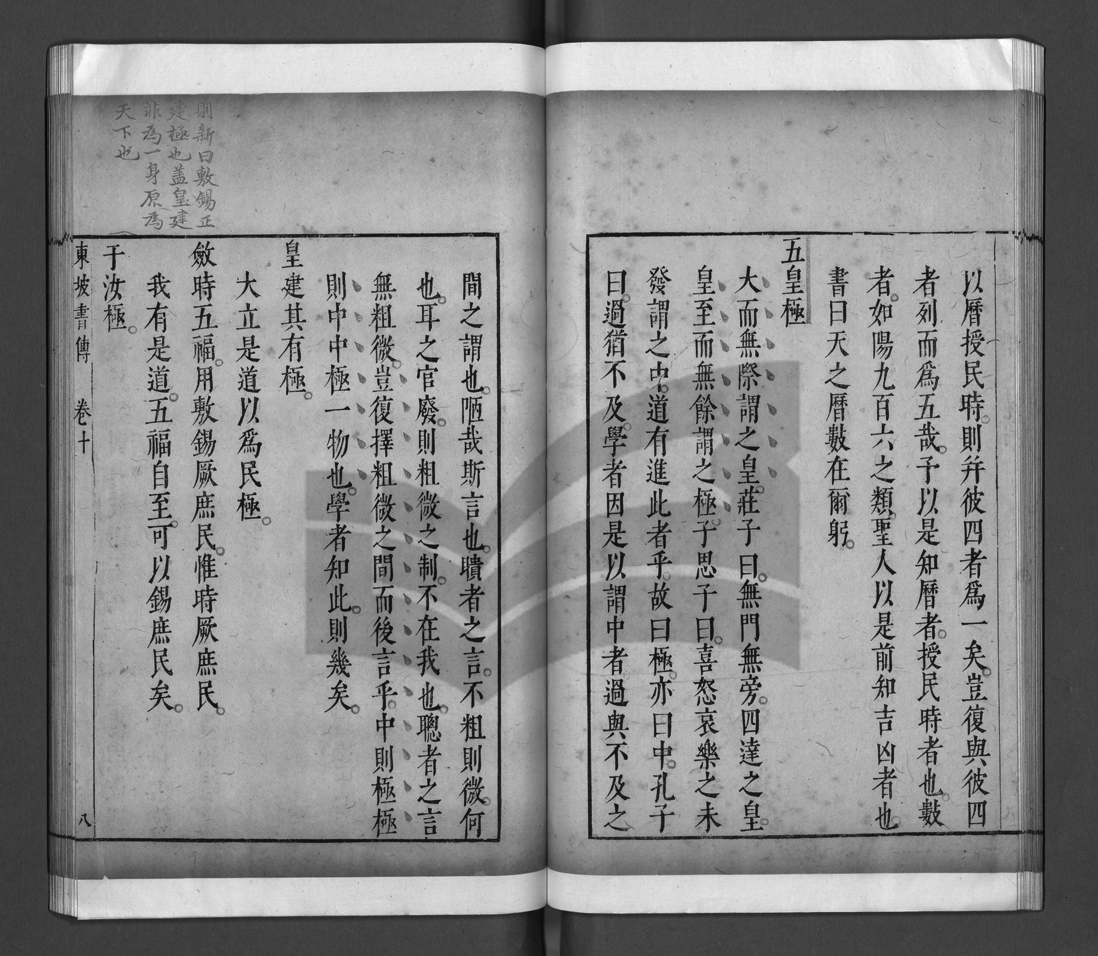 以曆授民時。則幷彼四者爲一矣。豈復與彼四
者列而爲五哉。予以是知曆者。授民時者也。數
者。如陽九百六之類。聖人以是前知吉凶者也。
書曰天之曆數在爾躬。
五皇極
大而無際謂之皇。莊子曰。無門無旁。四達之皇。
皇至而無餘謂之極。子思子曰。喜怒哀樂之未
發謂之中。道有進此者乎。故曰極。亦曰中。孔子
曰。過猶不及。學者因是以謂中者過與不及之
間之謂也。陋哉斯言也。聵者之言。不粗則微。何
也。耳之官廢。則粗微之制。不在我也。聰者之言
無粗微。豈復擇粗微之間而後言乎。中則極極
則中中極一物也。學者知此。則幾矣。
皇建其有極。
大立是道以爲民極。
斂時五福。用敷錫厥庶民。惟時厥庶民。
我有是道。五福自至。可以錫庶民矣。
于汝極。
東坡書傳 卷十 八
則新曰敷錫正
建極也蓋皇建
非為一身原為
天下也